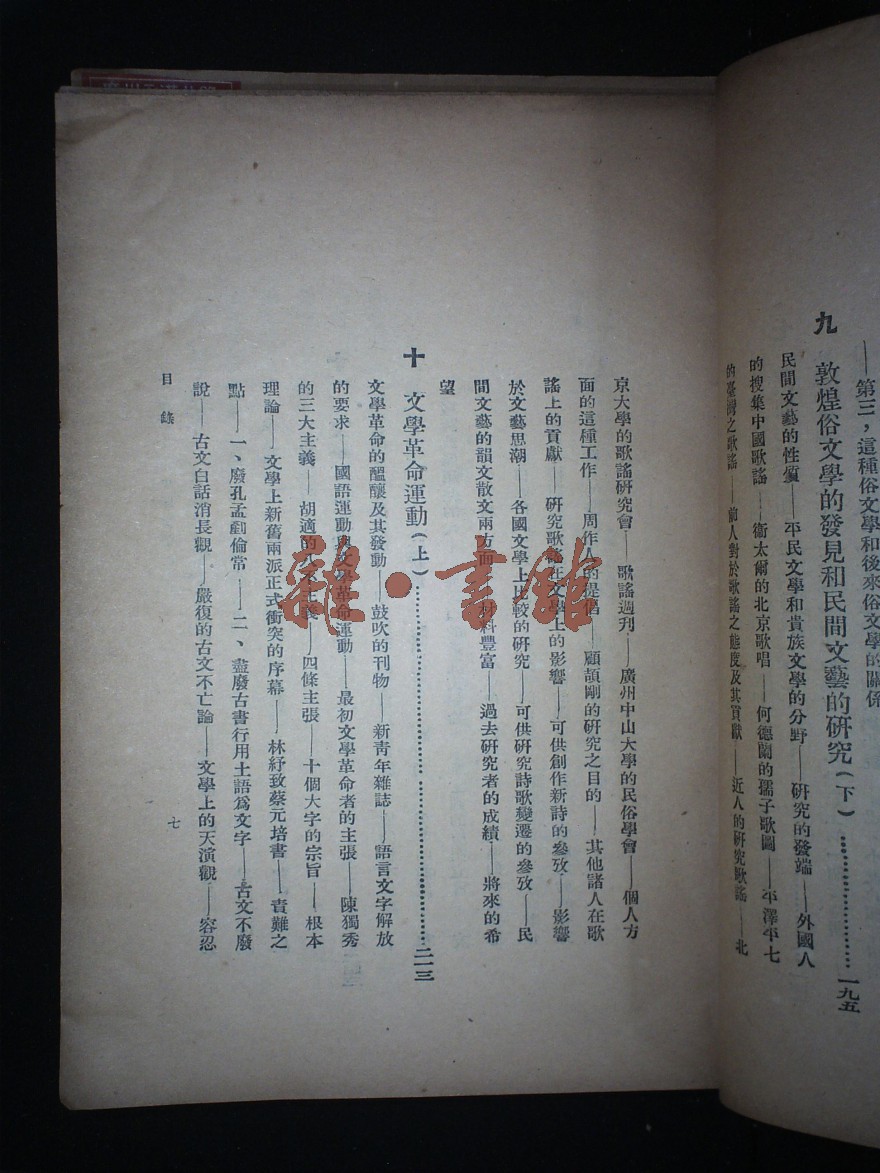 ——第三，這種俗文學和後來俗文學的關係
九 敦煌俗文學的發見和民間文藝的研究（下）……………一九五
民間文藝的性質——平民文學和貴族文學的分野——研究的發端——外國人
的搜集中國歌謠——衛太爾的北京歌唱——何德蘭的孺子歌圖——平澤平七
的臺灣之歌謠——前人對於歌謠之態度及其貢獻——近人的研究歌謠——北
京大學的歌謠研究會——歌謠週刊——廣州中山大學的民俗學會——個人方
面的這種工作——周作人的提倡——顧頡剛的研究之目的——其他諸人在歌
謠上的貢獻——研究歌謠在文學上的影響——可供創作新詩的參攷——影響
於文藝思潮——各國文學上比較的研究——可供研究詩歌變遷的參攷——民
間文藝的韻文散文兩方面——材料豐富——過去研究者的成績——將來的希
望
十 文學革命運動（上）……………二一三
文學革命的醞釀及其發動——鼓吹的刊物——新青年雜誌——語言文字解放
的要求——國語運動與文學革命運動——最初文學革命者的主張——陳獨秀
的三大主義——胡適的八不主義——四條主張——十個大字的宗旨——根本
理論——文學上新舊兩派正式衝突的序幕——林紓致蔡元培書——責難之
點——一、廢孔孟剷倫常——二、盡廢古書行用土語爲文字——古文不廢
說——古文白話消長觀——嚴復的古文不亡論——文學上的天演觀——容忍
目錄
七
雜·書館